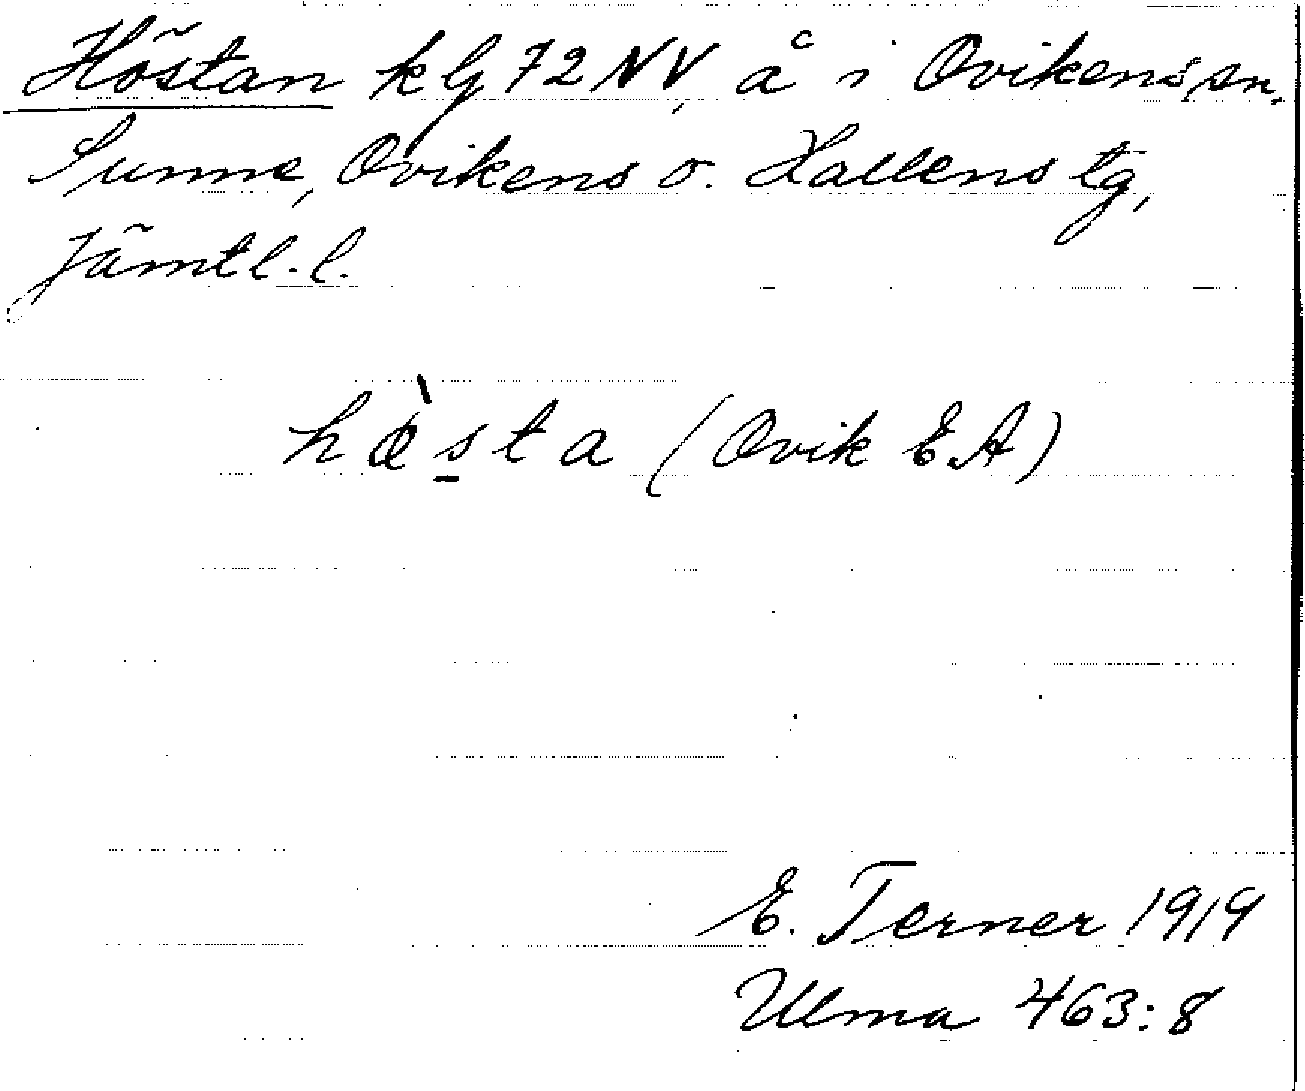 Höstan kbl 72 NV, å i Ovikens sn,
Sunne, Ovikens o. Hallens tg,
Jämtl. l.
hœ̀s̱ta (Ovik E.A)
E. Terner 1919
Ulma 463:8